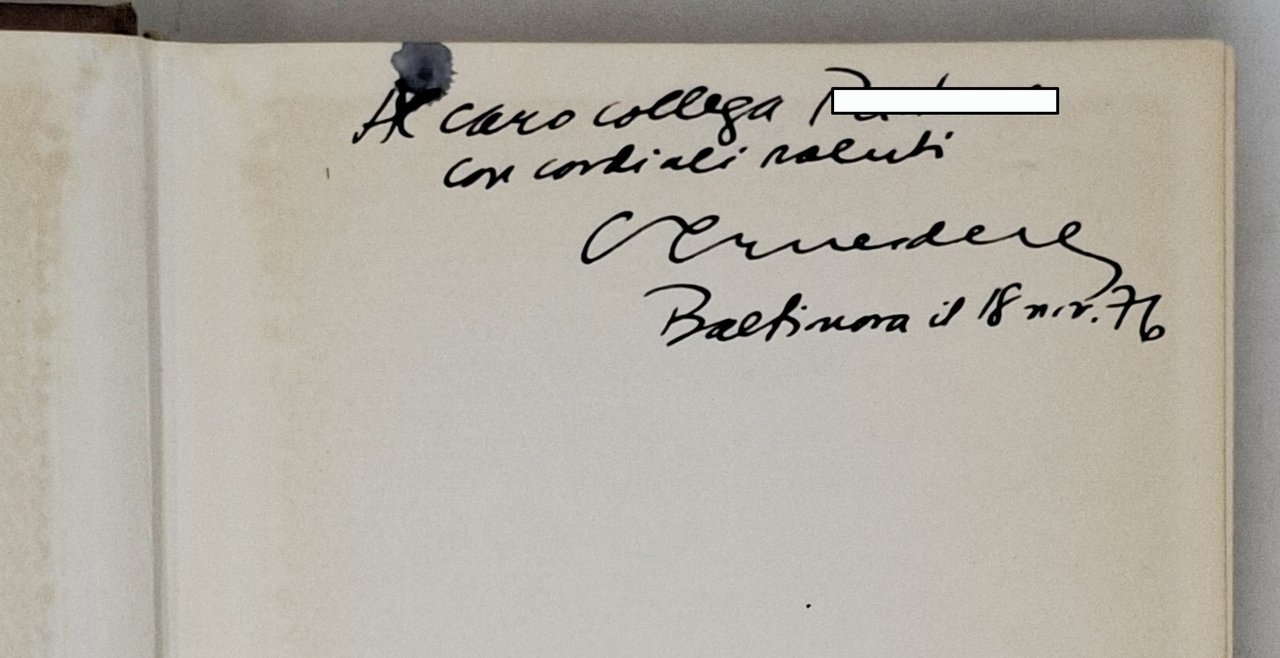 Al caro collega
con cordiali saluti
Baltimora il 18 nov. 76